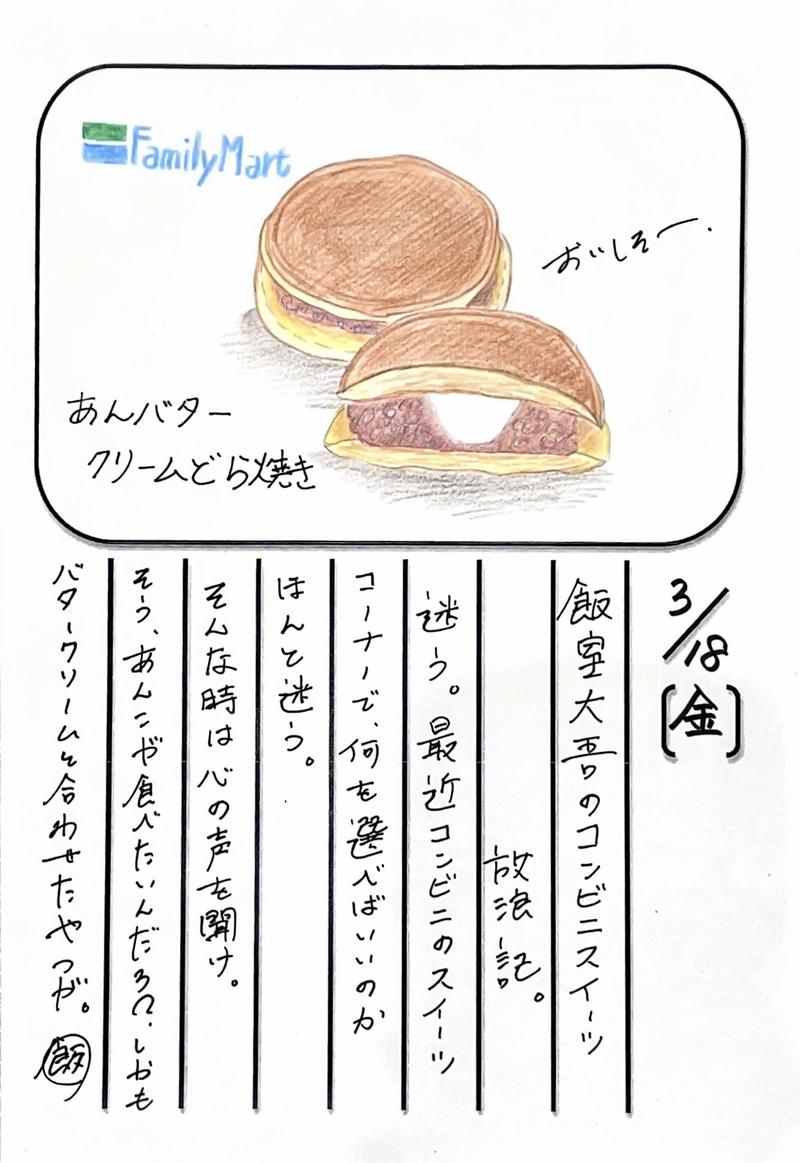 FamilyMart
おいしそー.
あんバター
クリームどら焼き
3/18
[金]
飯室大吾のコンビニスイーツ
放浪記。
迷う。最近コンビニのスイーツ
コーナーで、何を選べばいいのか
ほんと迷う。
そんな時は心の声を聞け。
そう、あんこが食べたいんだろΩ.しかも
バタークリームを合わせたやつが。
飯